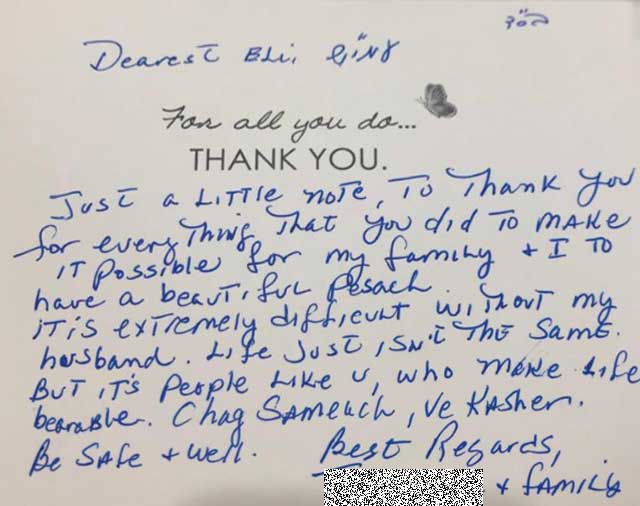 Dearest ELi,
For all you do...
THANK YOU.
Just a Little note, To Thank You
for everything That you did To MAKE
it possible for my family + I To
have a beautiful Pesach.
it is extremely difficult without my
husband. Life Just isn't The Same.
But it's People Like U, who make Life
bearable. Chag Sameach, Ve Kasher.
Be Safe + well. Best Regards,
+ family